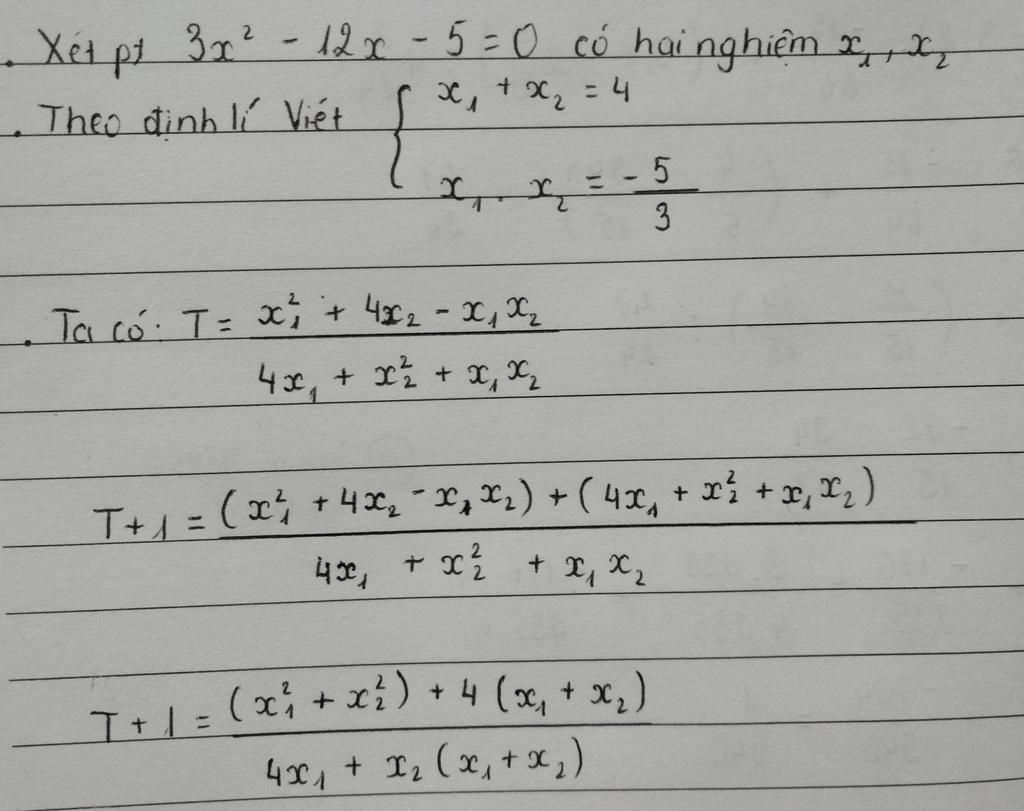 . Xét pt 3x² - 12x - 5 = 0 có hai nghiệm x₁, x₂
. Theo định lí Viét { x₁ + x₂ = 4
x₁ . x₂ = - 5/3
. Ta có: T = (x₁² + 4x₂ - x₁x₂) / (4x₁ + x₂² + x₁x₂)
T + 1 = ((x₁² + 4x₂ - x₁x₂) + (4x₁ + x₂² + x₁x₂)) / (4x₁ + x₂² + x₁x₂)
T + 1 = ((x₁² + x₂²) + 4(x₁ + x₂)) / (4x₁ + x₂(x₁ + x₂))